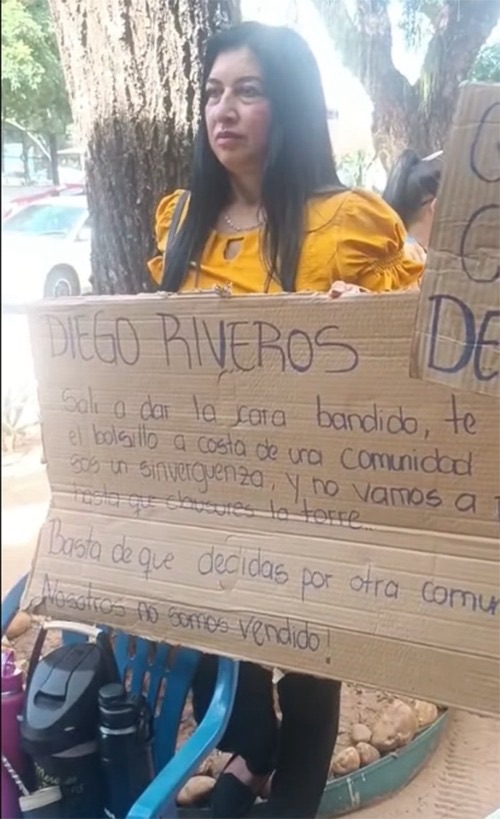 DIEGO RIVEROS
Sali a dar la cara bandido, te
el bolsillo a costa de una comunidad
sos un sinverguenza, y no vamos a
hasta que clausures la torre...
Basta de que decidas por otra comu
Nosotros no somos vendido!
G
G
DE